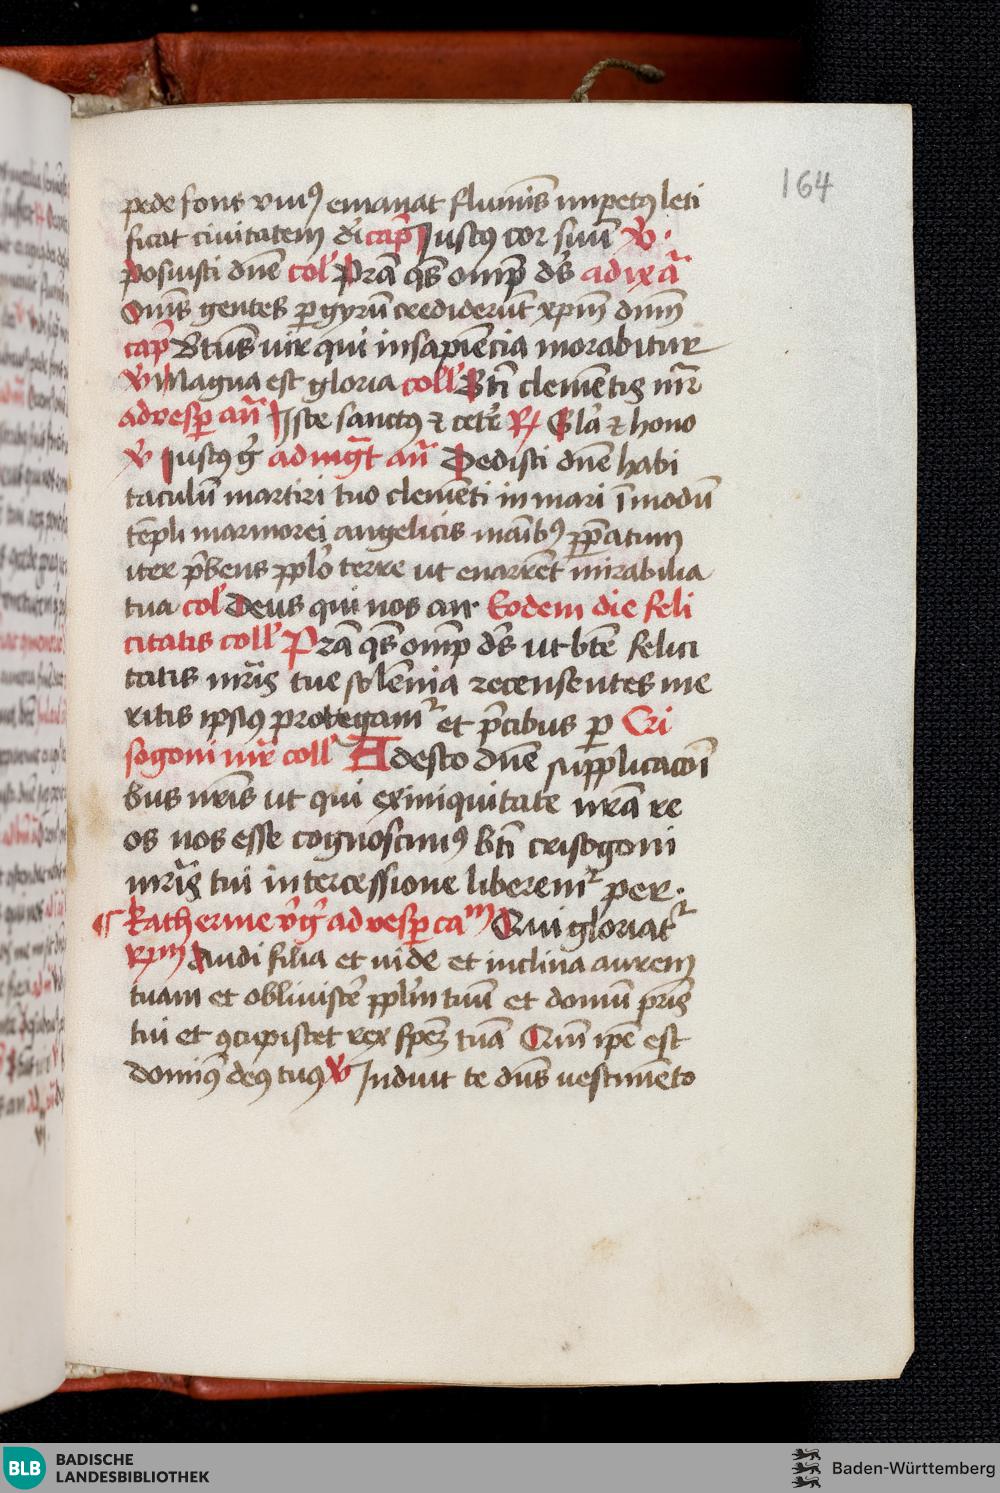 164
pede fons viuꝰ emanat fluminis impetꝰ leti
ficat ciuitatem di cap̄ Justꝰ cor suū ℣.
posuisti dn̄e col̄ Prā qs̄ omp̄ ds̄ ad ixā
Om̄s gentes ꝑ gyrū crediderūt xpm̄ dnm̄
cap̄ Btūs vir qui in sapiēcia morabitur
℣ Magna est gloria coll̄ Bti clemētis mr̄
ad vesꝑ an̄ Iste sanctꝰ & cete ℟ Gla & hono
℣ Justꝰ g̑ ad mgt̄ an̄ Dedisti dn̄e habi
taculū martiri tuo clemēti in mari ī modū
tēpli marmorei angelicis manibꝰ p̄paratum
iter p̄bens pplo terre ut enarrēt mirabilia
tua col̄ Deus qui nos an̄ Eodem die feli
citatis coll̄ Prā qs̄ omp̄ ds̄ ut btē felici
tatis mr̄is tue solēnia recensentes me
ritis ipsiꝰ protegam̄ et p̄cibus ꝑ Cri
sogoni mr̄ coll̄ Adesto dn̄e supplicacōi
bus nr̄is ut qui ex iniquitate nrā re
os nos esse cognoscimꝰ bti crisogoni
mr̄is tui intercessione liberem̄ per.
¶ Katherine v̄g̑ ad vesꝑ cam Qui gloriat̄
rm̄ Audi filia et vide et inclina aurem
tuam et obliuiscē pplm̄ tuū et domū pr̄is
tui et ꝯcupiscet rex spēm tuā Qm̄ ipē est
dominꝰ deꝰ tuꝰ ℣ Induit te dns̄ vestimēto
BLB
BADISCHE
LANDESBIBLIOTHEK
Baden-Württemberg